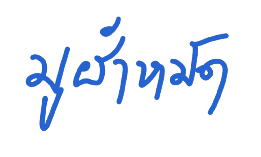 มูฮำหมัด